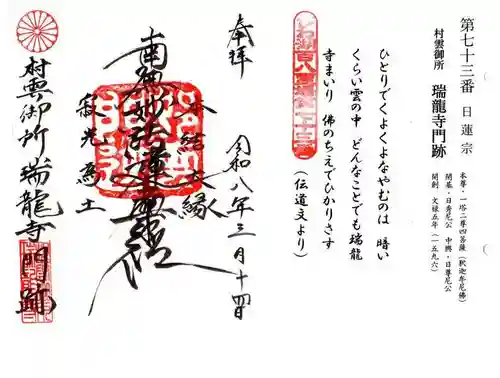 第七十三番 日蓮宗
村雲御所 瑞龍寺門跡
本尊・一塔二尊四菩薩(釈迦牟尼佛)
開基・日秀尼公 中興・日尊尼公
開創 文禄五年(一五九六)
ひとりでくよくよなやむのは 暗い
くらい雲の中 どんなことでも瑞龍
寺まいり 佛のちえでひかりさす
(伝道文より)
びわ湖百八霊場第七十三番
奉拝
令和八年三月十四日
本結大縁
南無妙法蓮華経
寂光為土
村雲御所瑞龍寺門跡